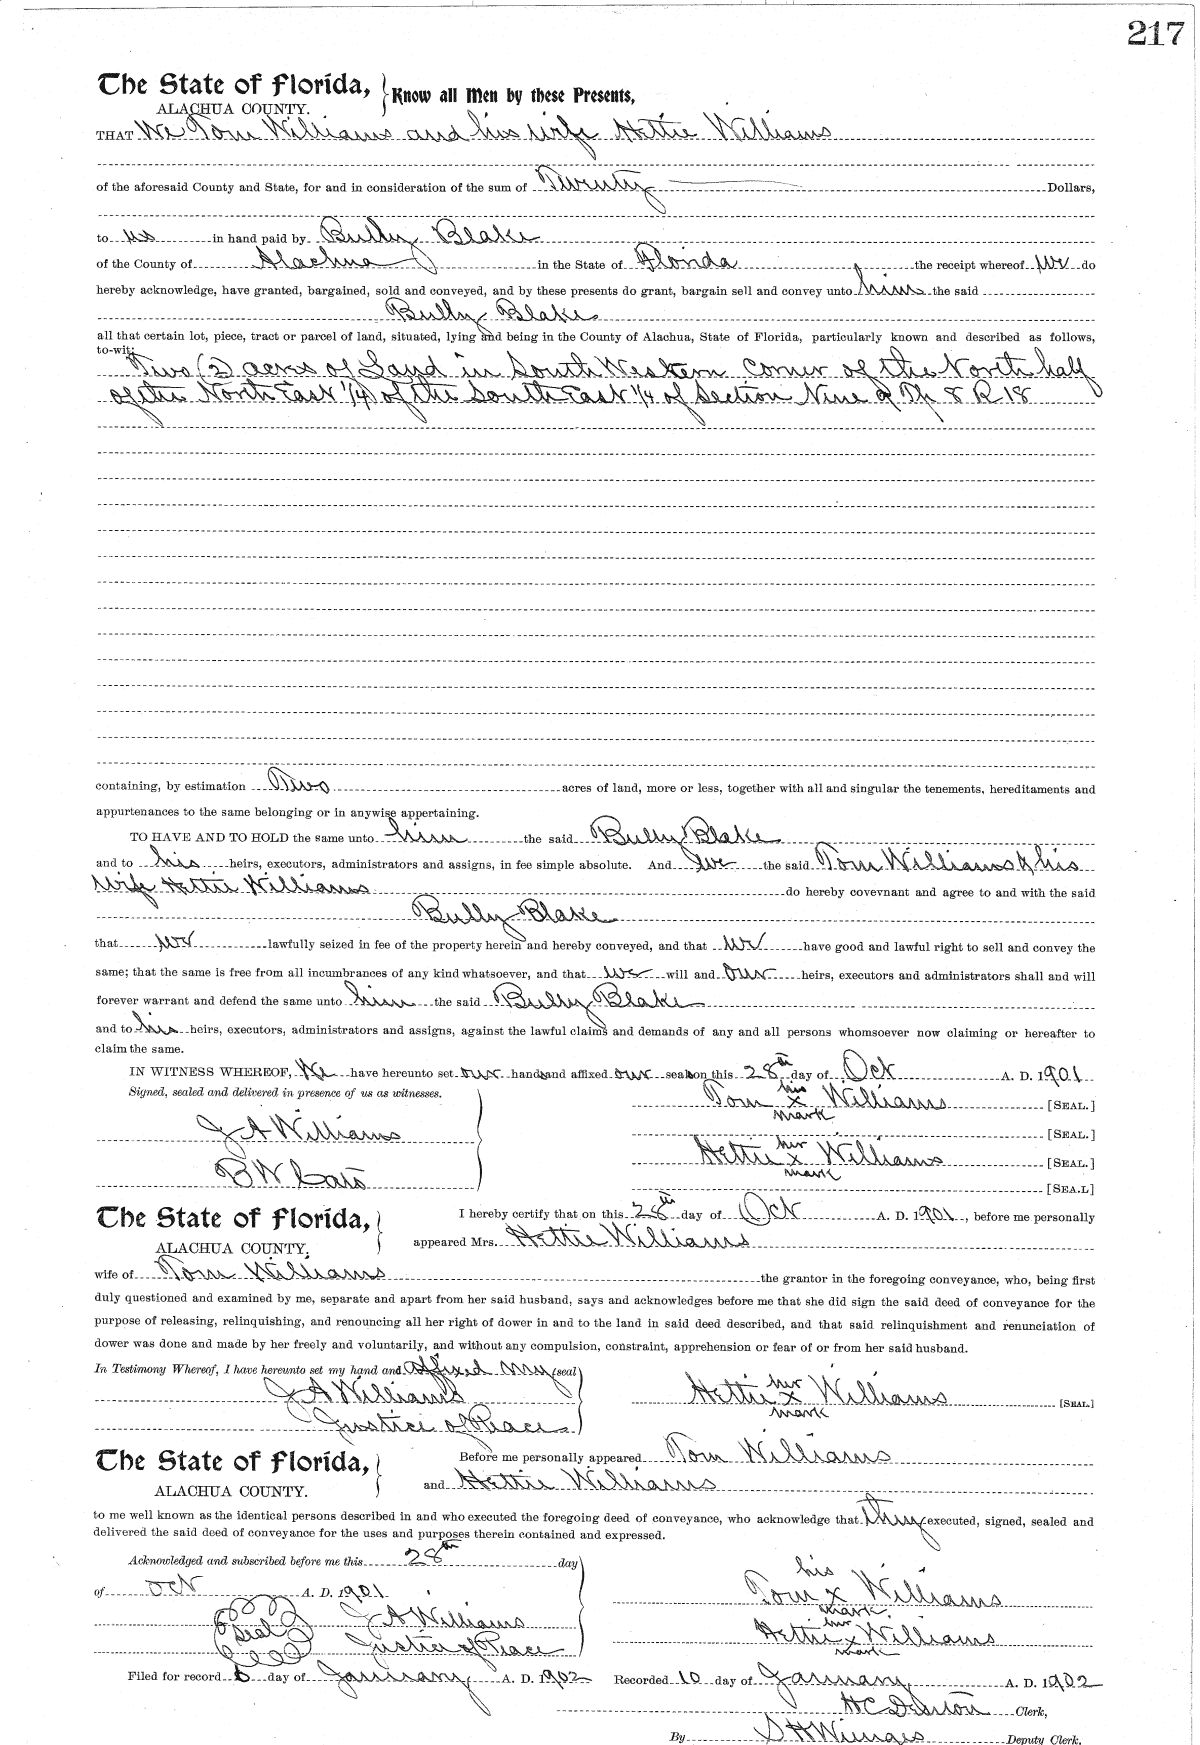 217
The State of Florida, Know all Men by these Presents,
ALACHUA COUNTY.
THAT We Tom Williams and his wife Hettie Williams
of the aforesaid County and State, for and in consideration of the sum of Twenty Dollars,
to us in hand paid by Bully Blake
of the County of Alachua in the State of Florida the receipt whereof we do
hereby acknowledge, have granted, bargained, sold and conveyed, and by these presents do grant, bargain sell and convey unto him the said
Bully Blake
all that certain lot, piece, tract or parcel of land, situated, lying and being in the County of Alachua, State of Florida, particularly known and described as follows,
to-wit:
Two (2) acres of Land in South Western Corner of the North half
of the North East 1/4 of the South East 1/4 of Section Nine 9 Tp 8 R 18
containing, by estimation Two acres of land, more or less, together with all and singular the tenements, hereditaments and
appurtenances to the same belonging or in anywise appertaining.
TO HAVE AND TO HOLD the same unto him the said Bully Blake
and to his heirs, executors, administrators and assigns, in fee simple absolute. And we the said Tom Williams & his
wife Hettie Williams do hereby covevnant and agree to and with the said
Bully Blake
that we lawfully seized in fee of the property herein and hereby conveyed, and that we have good and lawful right to sell and convey the
same; that the same is free from all incumbrances of any kind whatsoever, and that we will and our heirs, executors and administrators shall and will
forever warrant and defend the same unto him the said Bully Blake
and to his heirs, executors, administrators and assigns, against the lawful claims and demands of any and all persons whomsoever now claiming or hereafter to
claim the same.
IN WITNESS WHEREOF, We have hereunto set our hands and affixed our seals on this 28th day of Oct A. D. 1901
Signed, sealed and delivered in presence of us as witnesses.
his
Tom x Williams [SEAL.]
mark
J A Williams [SEAL.]
her
Hettie x Williams [SEAL.]
mark
B W Cato [SEA.L]
The State of Florida, I hereby certify that on this 28th day of Oct A. D. 1901, before me personally
ALACHUA COUNTY. appeared Mrs. Hettie Williams
wife of Tom Williams the grantor in the foregoing conveyance, who, being first
duly questioned and examined by me, separate and apart from her said husband, says and acknowledges before me that she did sign the said deed of conveyance for the
purpose of releasing, relinquishing, and renouncing all her right of dower in and to the land in said deed described, and that said relinquishment and renunciation of
dower was done and made by her freely and voluntarily, and without any compulsion, constraint, apprehension or fear of or from her said husband.
In Testimony Whereof, I have hereunto set my hand and affixed my seal
J A Williams
Justice of Peace
her
Hettie x Williams [SEAL.]
mark
The State of Florida, Before me personally appeared Tom Williams
ALACHUA COUNTY. and Hettie Williams
to me well known as the identical persons described in and who executed the foregoing deed of conveyance, who acknowledge that they executed, signed, sealed and
delivered the said deed of conveyance for the uses and purposes therein contained and expressed.
Acknowledged and subscribed before me this 28th day
of Oct A. D. 1901
Seal J A Williams
Justice of Peace
his
Tom x Williams
mark
her
Hettie x Williams
mark
Filed for record day of January A. D. 1902 Recorded 10 day of January A. D. 1902
H C Denton Clerk,
By S H Wienges Deputy Clerk.